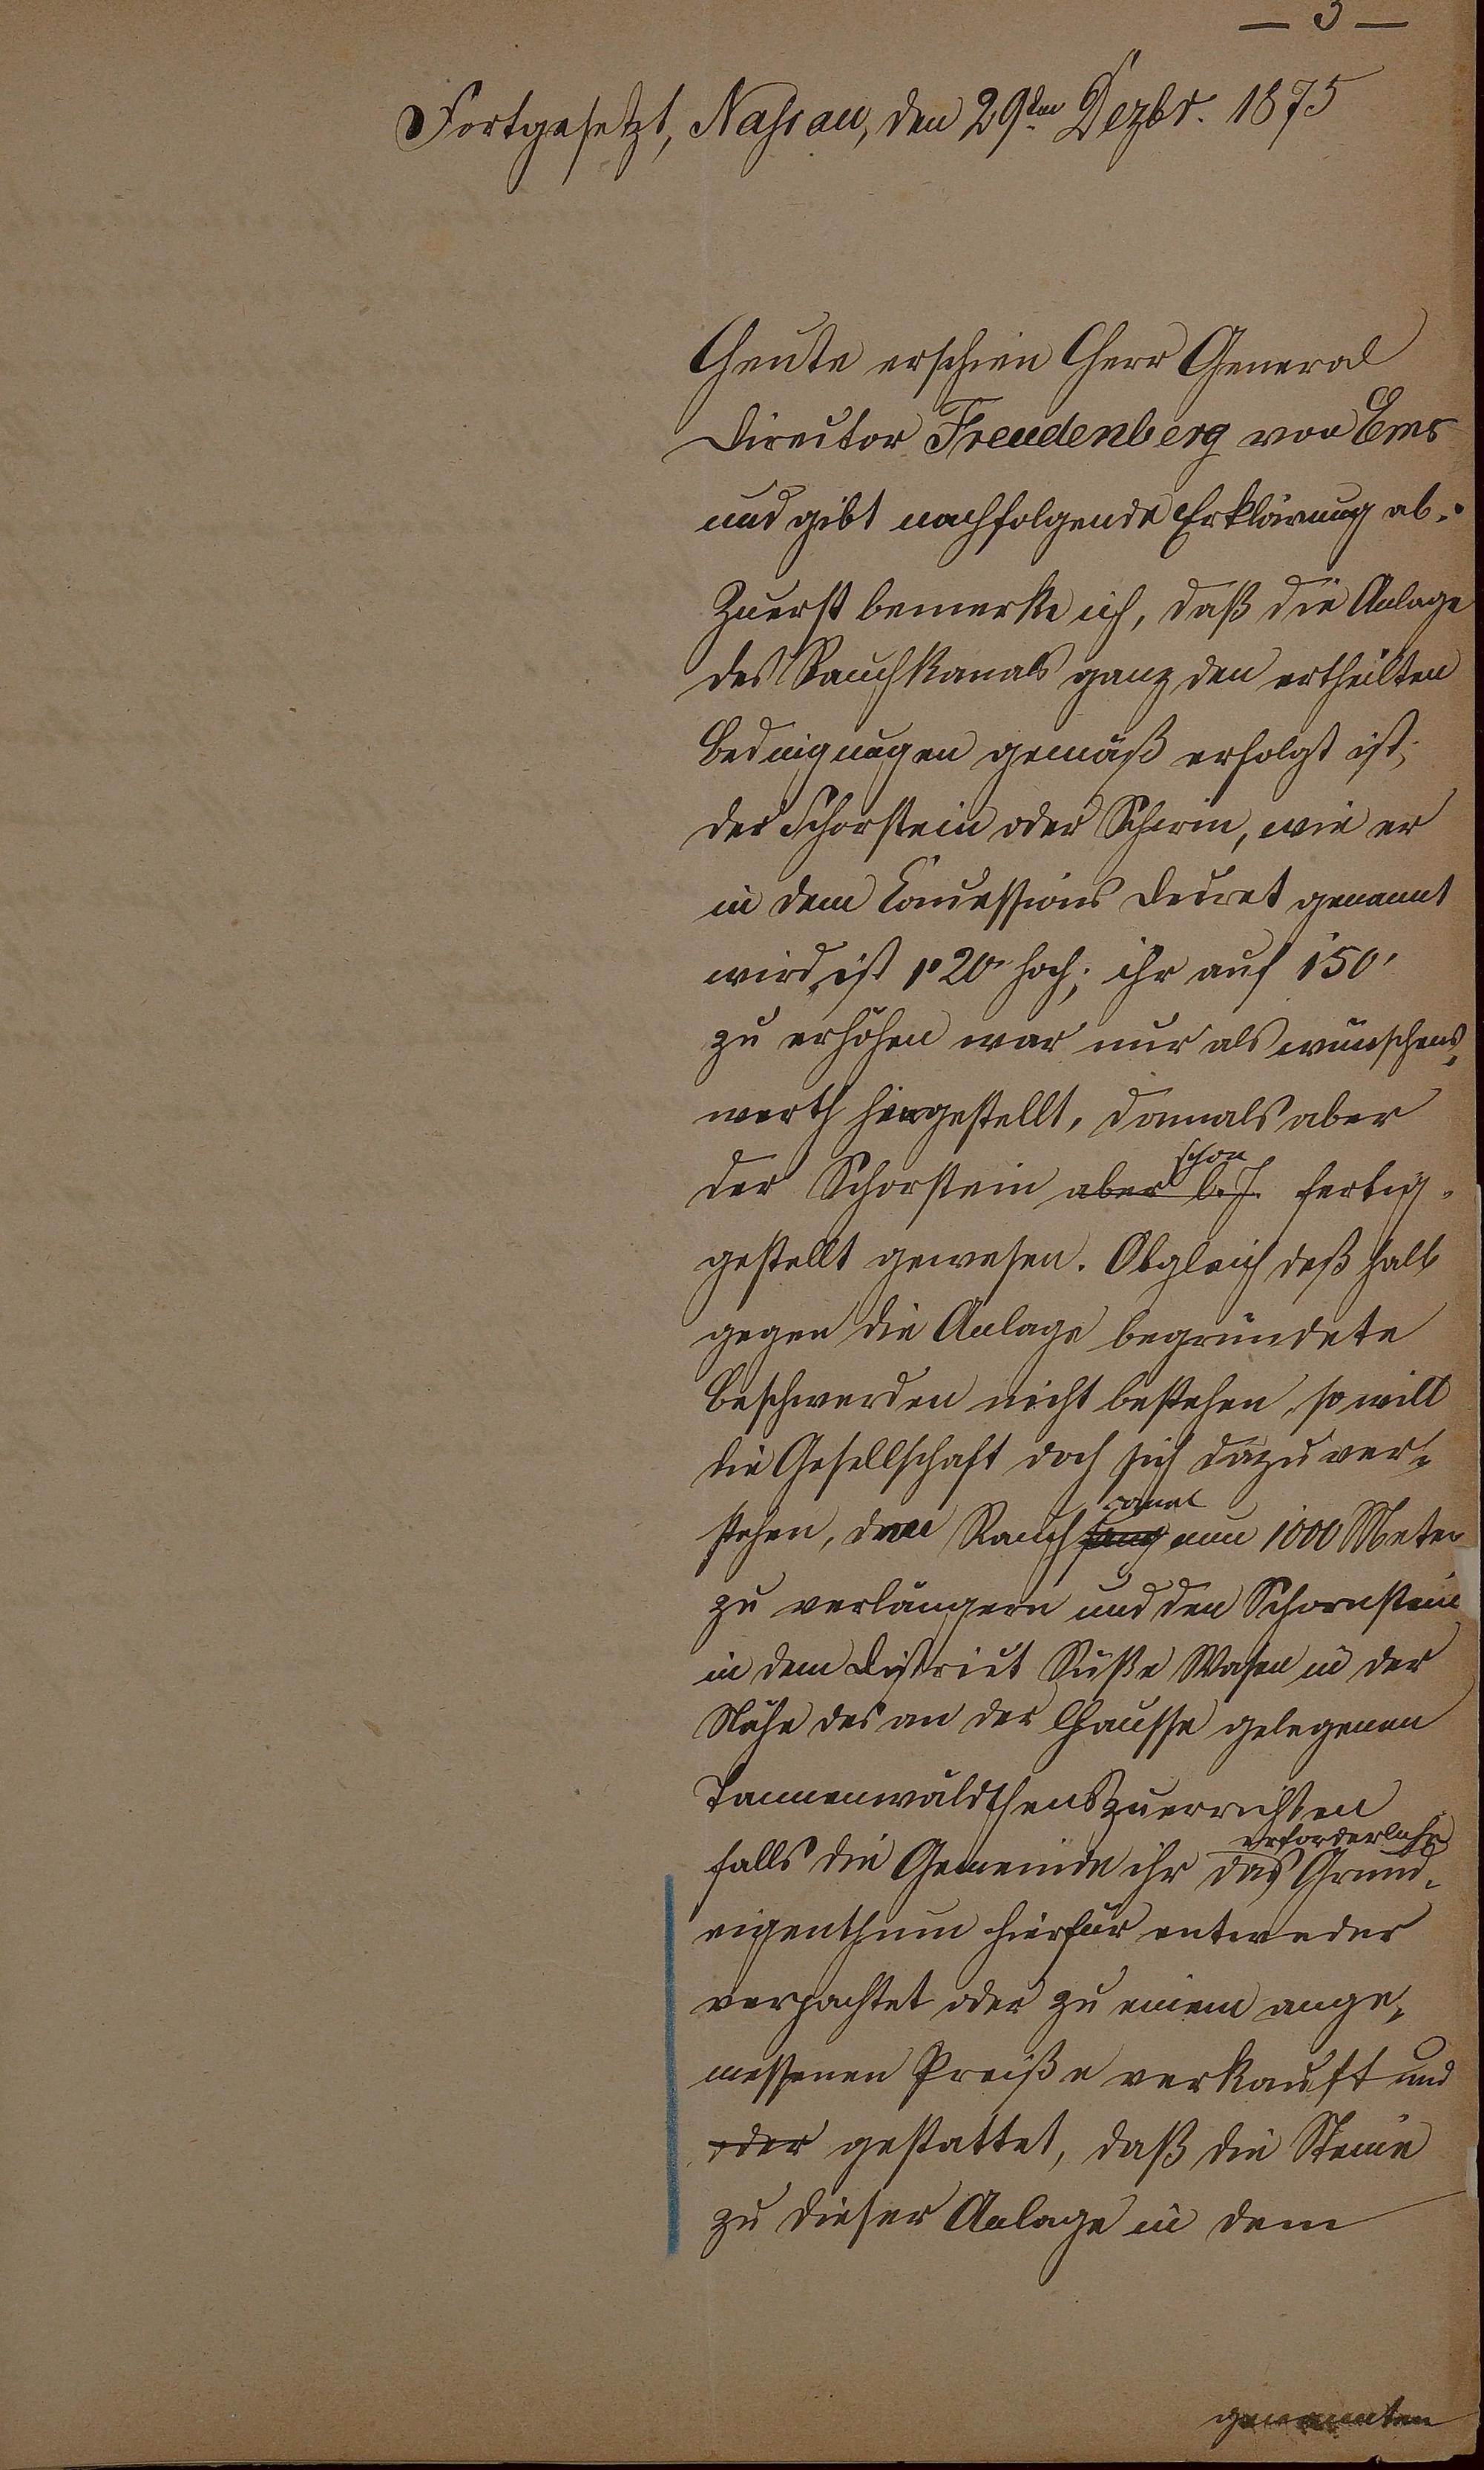 — 3 —
Fortgesetzt, Nassau, den 29ten Dezbr. 1875
Heute erschien Herr General
Director Freudenberg von Ems
und gibt nachfolgende Erklärung ab.
Zuerst bemerke ich, daß die Anlage
des Rauchkanals ganz den ertheilten
Bedingungen gemäß erfolgt ist,
der Schorstein oder
wie er
in dem Concessions Decret genannt
wird, ist 120' hoch; ihr auf 150'
zu erhöhen war nur als wünschens-
werth hingestellt, damals aber
schon
der Schorstein aber l. J. fertig-
gestellt gewesen. Obgleich deßhalb
gegen die Anlage begründete
Beschwerden nicht bestehen, so will
die Gesellschaft doch sich dazu ver-
canal
stehen, den Rauchfang um 1000 Meter
zu verlängern und den Schornstein
in dem District Süße Wasen in der
Nähe des an der Chausse gelegenen
Tannenwäldchens zu errichten
erforderliche
falls die Gemeinde ihr das Grund-
eigenthum hierfür entweder
verpachtet oder zu einem ange-
messenen Preiße verkauft und
oder gestattet, daß die Steine
zu dieser Anlage in dem
genannten